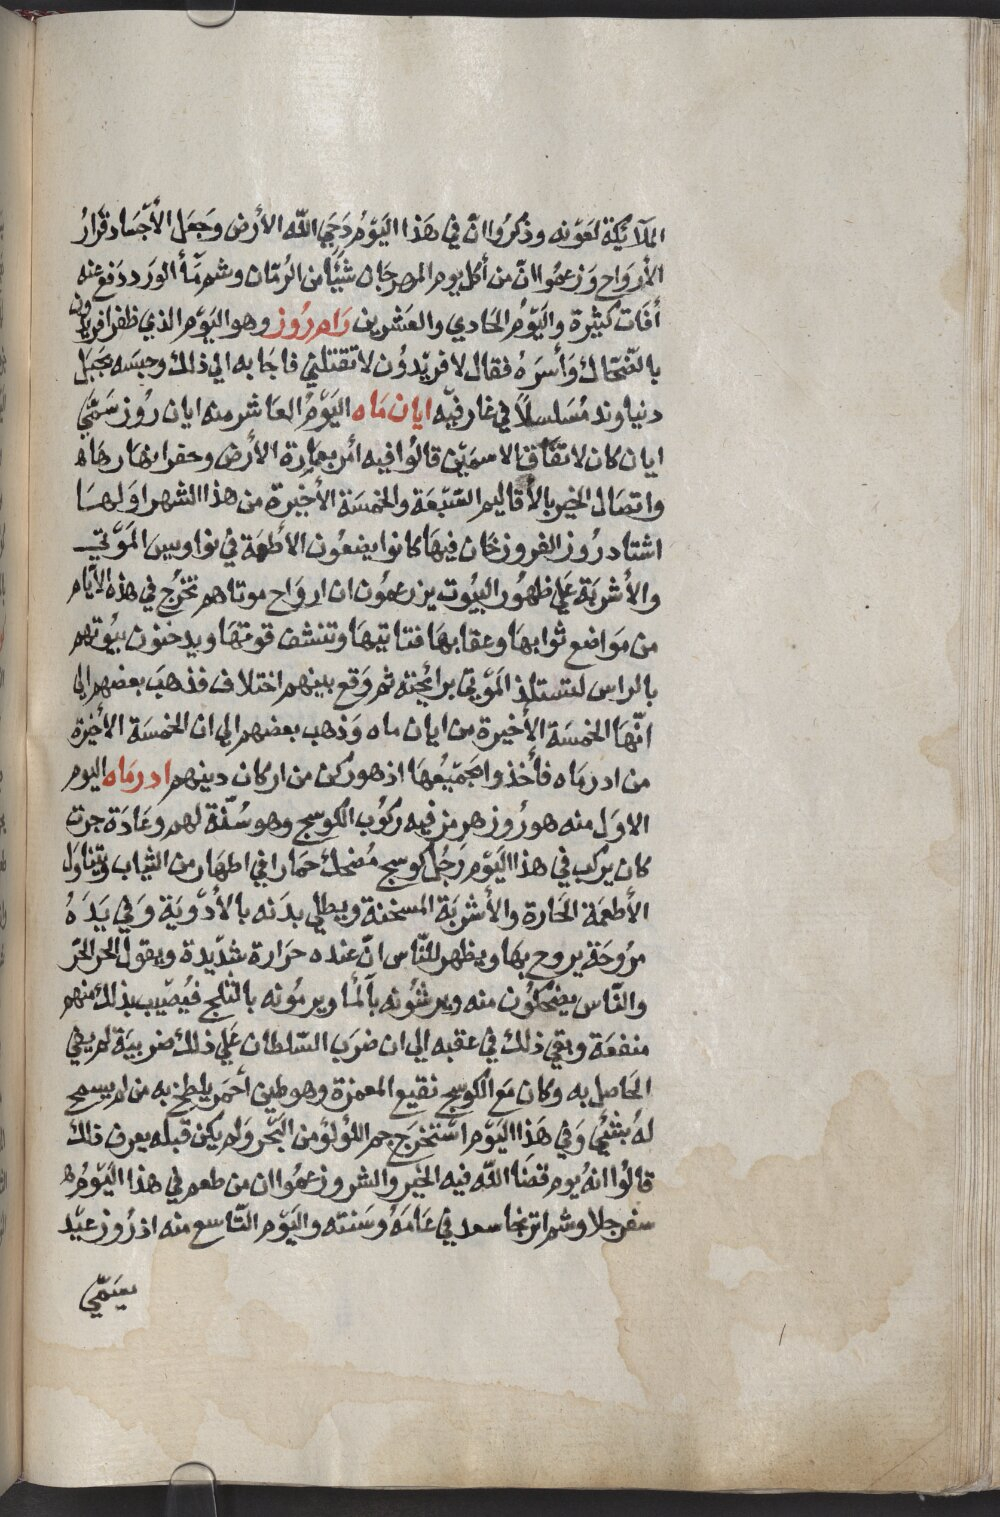 الملآئكة لعونه وذكروا ان في هذا اليوم دحي الله الأرض وجعل الأجساد قرار
الأرواح وزعموا ان من أكل يوم المهرجان شيئًا من الرمان وشم مآء الورد دفع عنه
أفات كثيرة واليوم الحادي والعشرين رام روز وهو اليوم الذي ظفر افريدون
بالضحاك وأسره فقال لافريدون لا تقتلني فاجابه الي ذلك وحبسه بجبل
دنياوند مسلسلاً في غار فيه ابان ماه اليوم العاشر منه ابان روز سمي
ابان كان لاتفاق الاسمين قالوا فيه أمر بعمارة الأرض وحفر انهارهاه
واتصال الخير بالأقاليم السبعة والخمسة الأخيرة من هذا الشهر اولها
اشتاد روز الفروزخان فيها كانوا يضعون الأطعمة في نواويس الموتي
والأشربة علي ظهور البيوت يزعمون ان ارواح موتاهم تخرج في هذه الأيام
من مواضع ثوابها وعقابها فتاتيها وتنشف قوتها ويدخنون بيوتهم
بالراس لتستلذ الموتي برائحته ثم وقع بينهم اختلاف فذهب بعضهم الي
انها الخمسة الأخيرة من ابان ماه وذهب بعضهم الي ان الخمسة الأخيرة
من ادر ماه فأخذوا بجميعها اذ هو ركن من اركان دينهم ادر ماه اليوم
الاول منه هو روز هرمز فيه ركوب الكوسج وهو سنة لهم وعادة جرت
كان يركب في هذا اليوم رجل كوسج مضحك حمارا في اطهار من الثياب ويتناول
الأطعمة الحارة والأشربة المسخنة ويطلي بدنه بالأدوية وفي يده
مروحة يروح بها ويظهر للناس ان عنده حرارة شديدة ويقول الحر الحر
والناس يضحكون منه ويرشونه بالمآء ويرمونه بالثلج فيصيب بذلك منهم
منفعة وبقي ذلك في عقبه الي ان ضرب السلطان علي ذلك ضريبة لم يفي
الحاصل به وكان مع الكوسج نقيع المعمزة وهو طين أحمر يلطخ به من لم يسمح
له بشئ وفي هذا اليوم استخرج جم اللؤلؤ من البحر ولم يكن قبله يعرف ذلك
قالوا انه يوم قضا الله فيه الخير والشر وزعموا ان من طعم في هذا اليوم ه
سفرجلا وشم اترنجا سعد في عامه وسنته واليوم التاسع منه اذ روز عيد
يسمي